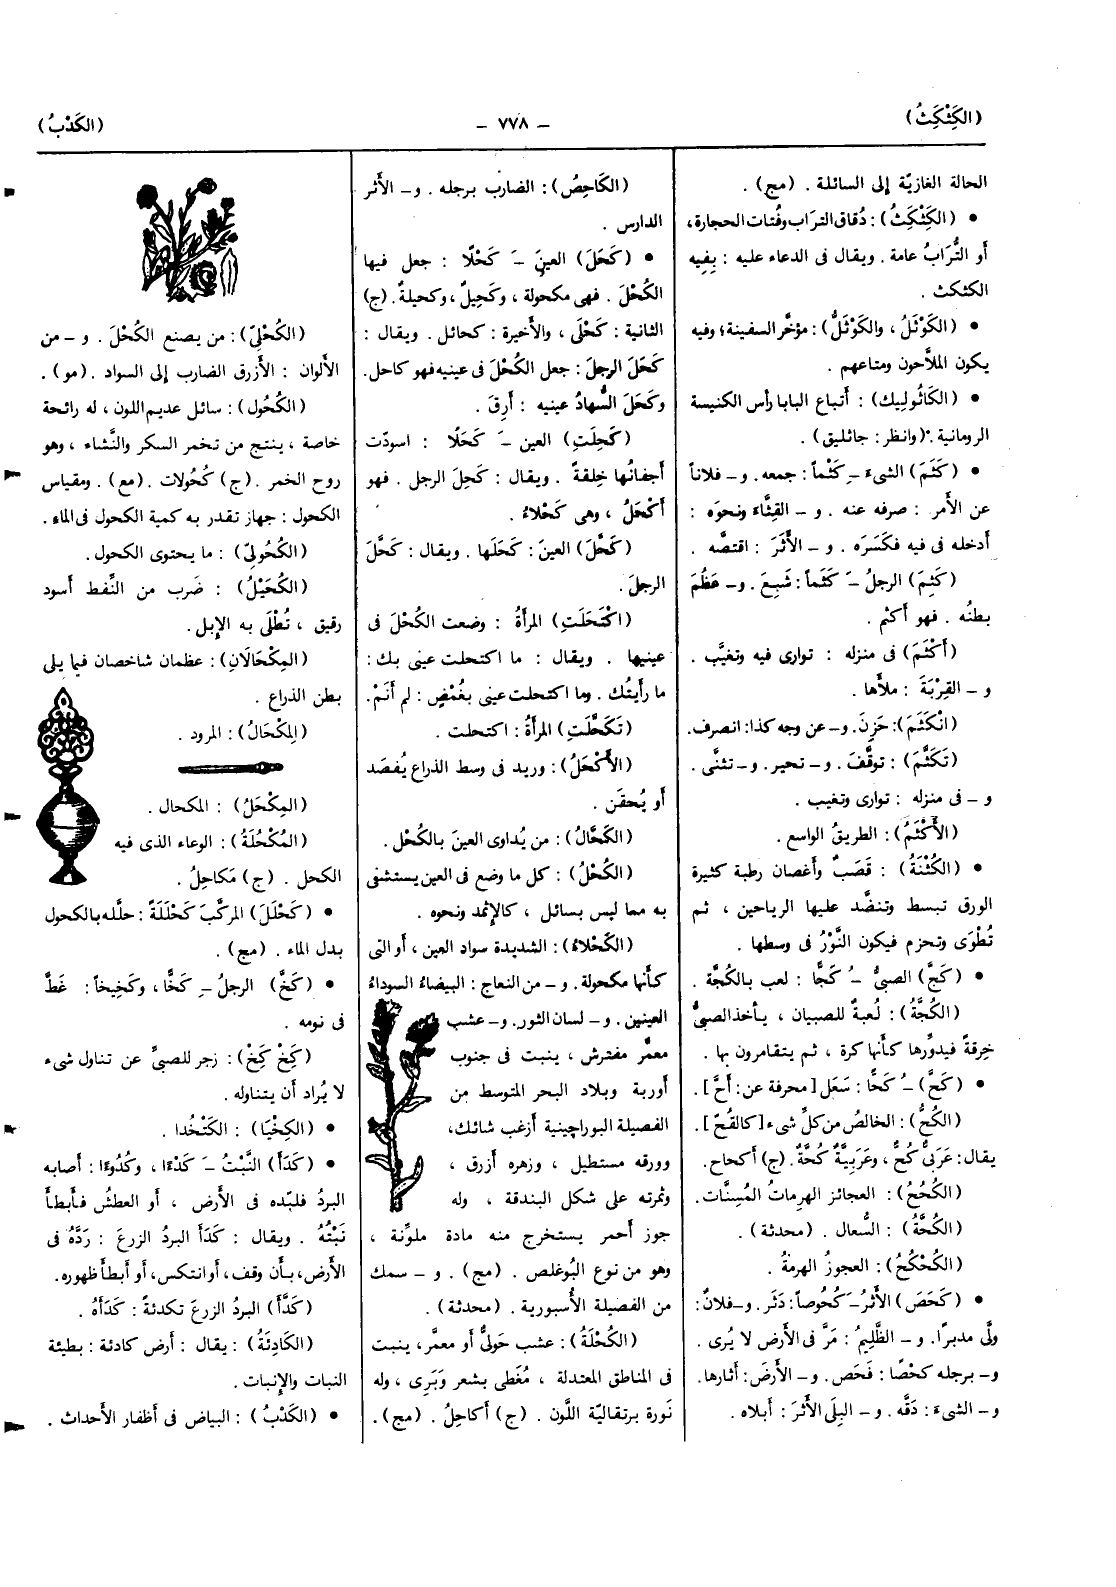 (الكِثْكِثُ)
— ٧٧٨ —
(الكَدْبُ)
الحالة الغازيّة إلى السائلة . (مج) .
• (الكِثْكِثُ) : دُقاق التراب وفُتات الحجارة،
أو التُّرابُ عامة . ويقال فى الدعاء عليه : بِفِيه
الكثكث .
• (الكَوْثَلُ ، والكَوْثَلُّ) : مؤخَّر السفينة؛ وفيه
يكون الملاَّحون ومتاعهم .
• (الكَاثُولِيك) : أتباع البابا رأس الكنيسة
الرومانية . (وانظر : جاثليق) .
• (كَثَمَ) الشىءَ -ِ كَثْماً : جمعه . و- فلاناً
عن الأمر : صرفه عنه . و - القِثَّاءَ ونحوَه :
أدخله فى فيه فكَسَرَه . و - الأَثَرَ : اقتصَّه .
(كَثِمَ) الرجلُ -َ كَثَماً : شَبِعَ . و- عَظُمَ
بطنُه . فهو أكثم .
(أَكْثَمَ) فى منزله : توارى فيه وتغيَّب .
و - القِرْبَةَ : ملأها .
(انْكَثَمَ): حَزِنَ. و- عن وجه كذا: انصرف.
(تَكَثَّمَ) : توقَّفَ . و- تحير . و- تثنَّى .
و - فى منزله : توارى وتغيب .
(الأَكْثَمُ) : الطريقُ الواسع .
• (الكُثْنَةُ) : قَصَبٌ وأغصان رطبة كثيرة
الورق تبسط وتنضَّد عليها الرياحين ، ثم
تُطْوَى وتحزم فيكون النَّوْرُ فى وسطها .
• (كَجَّ) الصبىُّ -ُ كَجًّا : لعب بالكُجَّة .
(الكُجَّةُ) : لُعبةٌ للصبيان ، يأخذ الصبىُّ
خِرقةً فيدوِّرها كأنها كرة ، ثم يتقامرون بها .
• (كَحَّ) -ُ كَحًّا : سَعَل [محرفة عن: أَحَّ] .
(الكُحُّ) : الخالصُ من كلِّ شىء [كالقُحّ] .
يقال: عَرَبىٌّ كُحٌّ ، وعَرَبيَّةٌ كُحَّةٌ. (ج) أكحاح.
(الكُحُحُ) : العجائز الهرِماتُ المُسِنَّات.
(الكُحَّةُ) : السُّعال . (محدثة) .
(الكُحْكُحُ) : العجوزُ الهرمةُ .
• (كَحَصَ) الأَثرُ -َ كُحُوصاً: دَثَر. و-فلانٌ:
ولَّى مدبرًا. و - الظَّلِيمُ : مَرَّ فى الأرض لا يُرى .
و- برجله كحْصًا : فَحَص . و- الأَرضَ: أثارها.
و- الشىءَ : دَقَّه . و - البِلَى الأثرَ : أبلاه .
(الكَاحِصُ) : الضارب برجله . و- الأَثر
الدارس .
• (كَحَلَ) العينَ -َ كَحْلًا : جعل فيها
الكُحْلَ . فهى مكحولة ، وكَحِيلٌ ، وكحيلةٌ . (ج)
الثانية : كَحْلَى ، والأَخيرة : كحائل . ويقال :
كَحَلَ الرجلَ : جعل الكُحْلَ فى عينيه فهو كاحل.
وكَحَلَ السُّهادُ عينيه : أَرِقَ .
(كَحِلَتِ) العين -َ كَحَلًا : اسودّت
أجفانُها خِلقةً . ويقال : كَحِلَ الرجل . فهو
أَكْحَلُ ، وهى كَحْلَاءُ .
(كَحَّلَ) العينَ : كَحَلَها . ويقال : كَحَّلَ
الرجلَ .
(اكْتَحَلَتِ) المرأَةُ : وضعت الكُحْلَ فى
عينيها . ويقال : ما اكتحلت عينى بك :
ما رأيتُك . وما اكتحلت عينى بغُمْضٍ : لم أَنَمْ .
(تَكَحَّلَتِ) المرأَةُ : اكتحلت .
(الأَكْحَلُ) : وريد فى وسط الذراع يُفصَد
أو يُحقَن .
(الكَحَّالُ) : من يُداوى العينَ بالكُحْل .
(الكُحْلُ) : كل ما وضع فى العين يستشفى
به مما ليس بسائل ، كالإِثمد ونحوه .
(الكَحْلاءُ) : الشديدة سواد العين ، أو التى
كأنها مكحولة. و - من النعاج : البيضاءُ السوداءُ
العينين. و- لسان الثور. و- عشب
معمَّر مفترش ، ينبت فى جنوب
أوربة وبلاد البحر المتوسط من
الفصيلة البوراچينية أزغب شائك،
وورقه مستطيل ، وزهره أزرق ،
وثمرته على شكل البندقة ، وله
جوز أحمر يستخرج منه مادة ملوِّنة ،
وهو من نوع البُوغلص . (مج) . و - سمك
من الفصيلة الأُسبورية . (محدثة) .
(الكُحْلَةُ) : عشب حَولىٌّ أو معمَّر، ينبت
فى المناطق المعتدلة ، مُغَطى بشعر وَبَرى ، وله
نَورة برتقاليّة اللَّون . (ج) أكاحِلُ . (مج).
(الكُحْلِىّ) : من يصنع الكُحْلَ . و - من
الألوان : الأَزرق الضارب إلى السواد . (مو) .
(الكُحُول) : سائل عديم اللون ، له رائحة
خاصة ، ينتج من تخمر السكر والنَّشاء ، وهو
روح الخمر . (ج) كُحُولات . (مع) . ومقياس
الكحول : جهاز تقدر به كمية الكحول فى الماء .
(الكُحُولىّ) : ما يحتوى الكحول.
(الكُحَيْلُ) : ضَرب من النِّفط أسود
رقيق ، تُطْلَى به الإِبل .
(المِكْحَالَانِ) : عظمان شاخصان فيما يلى
بطن الذراع .
(المِكْحَالُ) : المرود .
(المِكْحَلُ) : المكحال .
(المُكْحُلَةُ) : الوعاء الذى فيه
الكحل . (ج) مَكاحِلُ .
• (كَحْلَلَ) المركَّبَ كَحْلَلَةً : حلَّله بالكحول
بدل الماء . (مج) .
• (كَخَّ) الرجلُ -ِ كَخًّا ، وكَخِيخاً : غَطَّ
فى نومه .
(كَِخْ كَِخْ) : زجر للصبىِّ عن تناول شىء
لا يُراد أن يتناوله .
• (الكِخْيَا) : الكَتْخُدا .
• (كَدَأَ) النَّبْتُ -َ كَدْءًا ، وكُدُوءًا : أصابه
البردُ فلبّده فى الأرض ، أو العطشُ فأبطأ
نَبْتُهُ . ويقال : كَدَأَ البردُ الزرعَ : رَدَّهُ فى
الأَرض، بأن وقف، أو انتكس، أو أبطأ ظهوره.
(كَدَّأَ) البردُ الزرعَ تكدئةً : كَدَأَهُ .
(الكَادِئَةُ) : يقال : أرض كادئة : بطيئة
النبات والإِنبات .
• (الكَدْبُ) : البياض فى أظفار الأحداث .